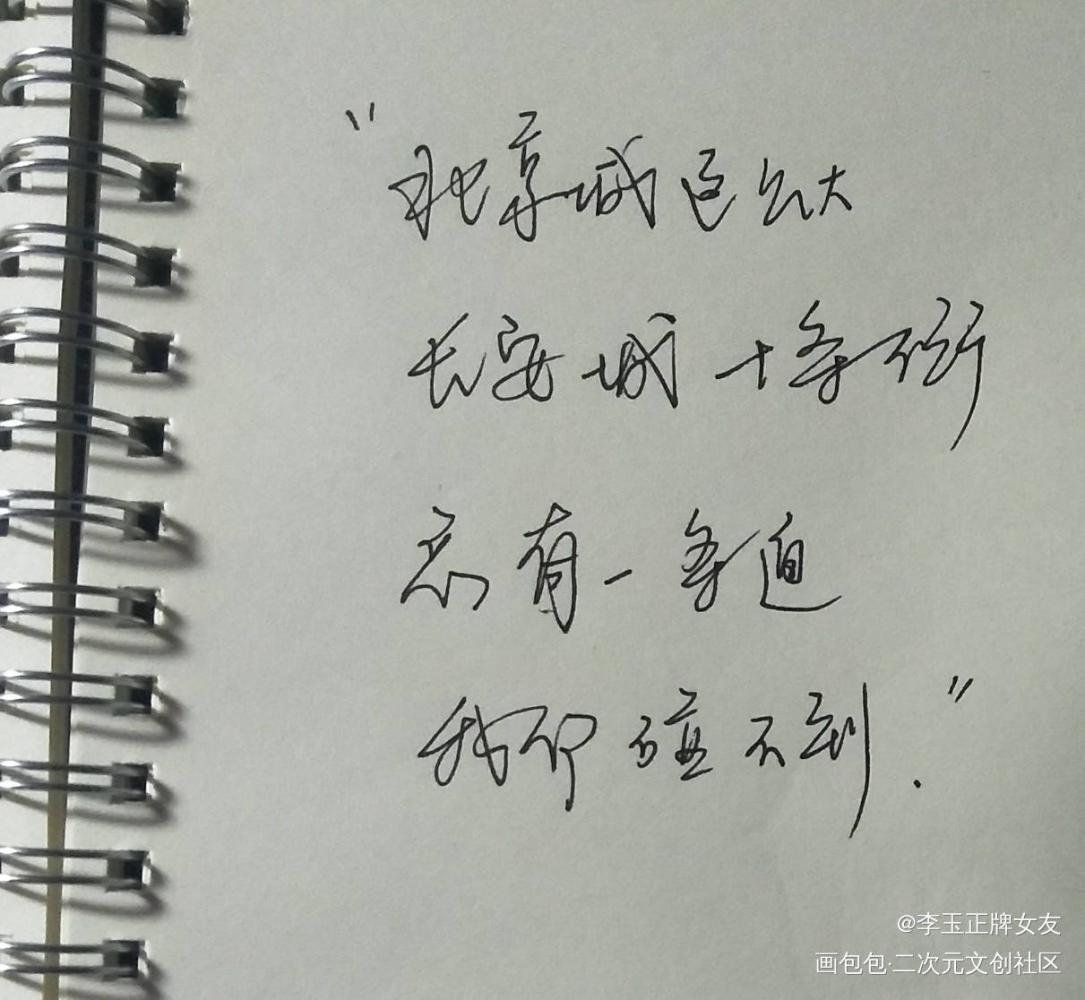 "北京城这么大
长安城十条街
总有一条道
我却碰不到."
@李玉正牌女友
画包包·二次元文创社区